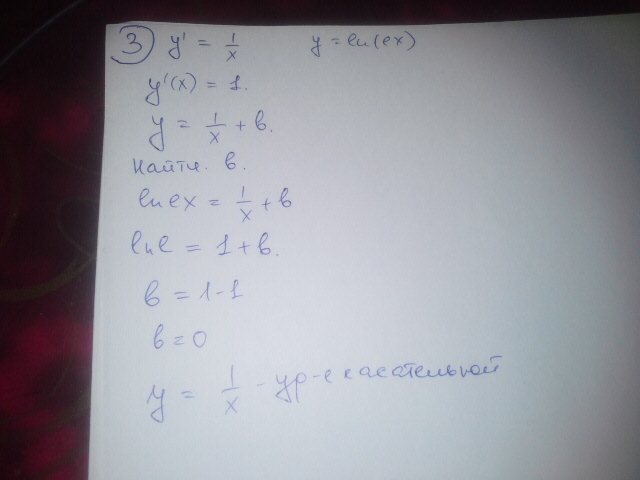 3) y' = 1/x y = ln(ex)
y'(x) = 1.
y = 1/x + b.
Найти b.
ln ex = 1/x + b
ln e = 1 + b.
b = 1 - 1
b = 0
y = 1/x - ур-е касательной